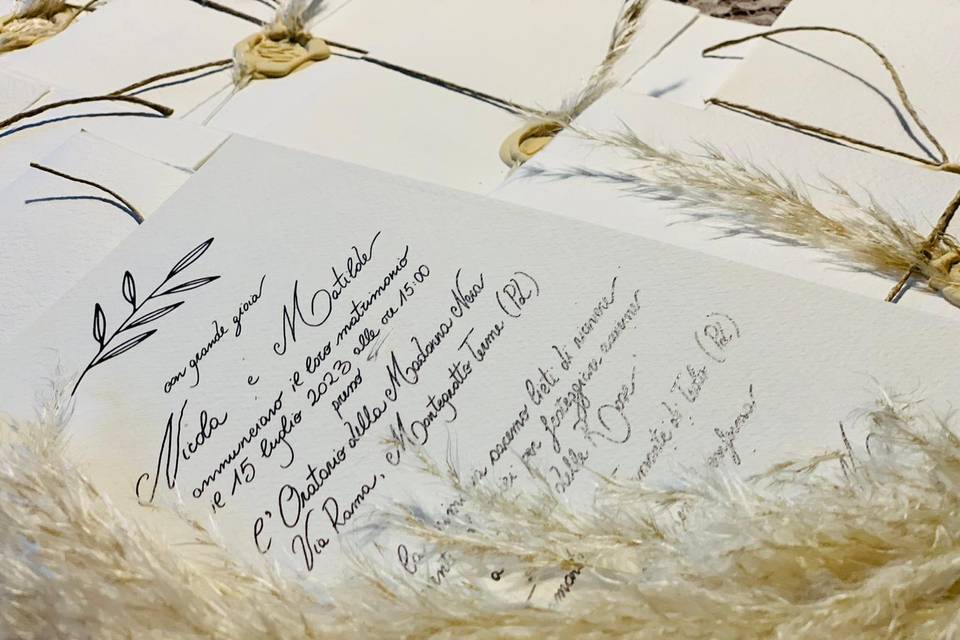 con grande gioia
Nicola e Matilde
annunciano il loro matrimonio
il 15 luglio 2023 alle ore 15:00
presso
l'Oratorio della Madonna Nera
Via Roma, Montegrotto Terme (Pd)
saremo lieti di ricevere
per festeggiare assieme
delle Rose
(Pd)